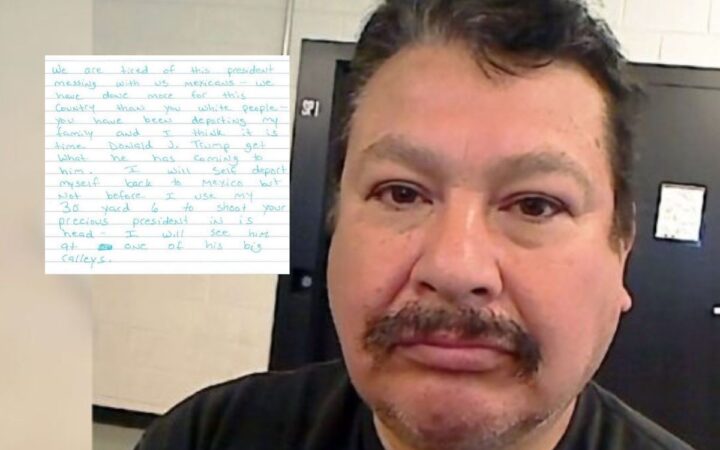 We are tired of this president
messing with us mexicans - we
have done more for this
Country than you white people -
you have been deporting my
family and I think it is
time Donald J. Trump get
What he has coming to
him. I will self deport
myself back to Mexico but
Not before I use my
30 yard 6 to shoot your
precious president in is
head - I will see him
at one of his big
ralleys.
SPI